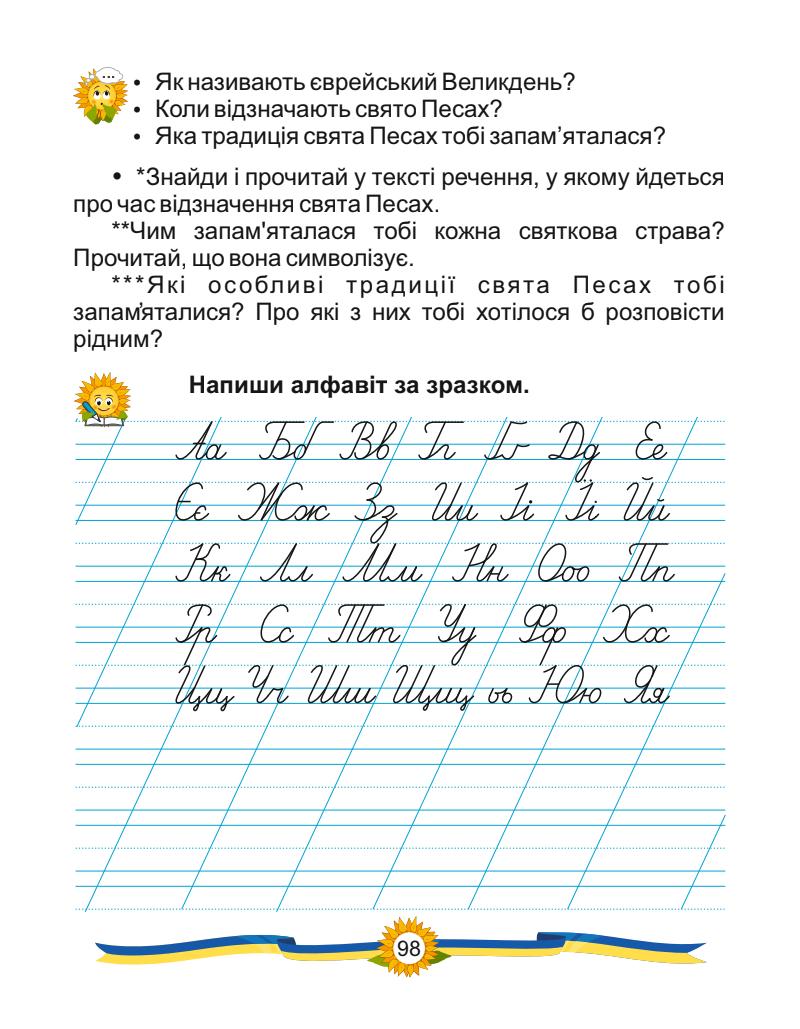 ...
• Як називають єврейський Великдень?
• Коли відзначають свято Песах?
• Яка традиція свята Песах тобі запам’яталася?
• *Знайди і прочитай у тексті речення, у якому йдеться
про час відзначення свята Песах.
**Чим запам'яталася тобі кожна святкова страва?
Прочитай, що вона символізує.
***Які особливі традиції свята Песах тобі
запам’яталися? Про які з них тобі хотілося б розповісти
рідним?
Напиши алфавіт за зразком.
Аа Бб Вв Гг Ґґ Дд Ее
Єє Жж Зз Ии Іі Її Йй
Кк Лл Мм Нн Оо Пп
Рр Сс Тт Уу Фф Хх
Цц Чч Шш Щщ ь Юю Яя
98